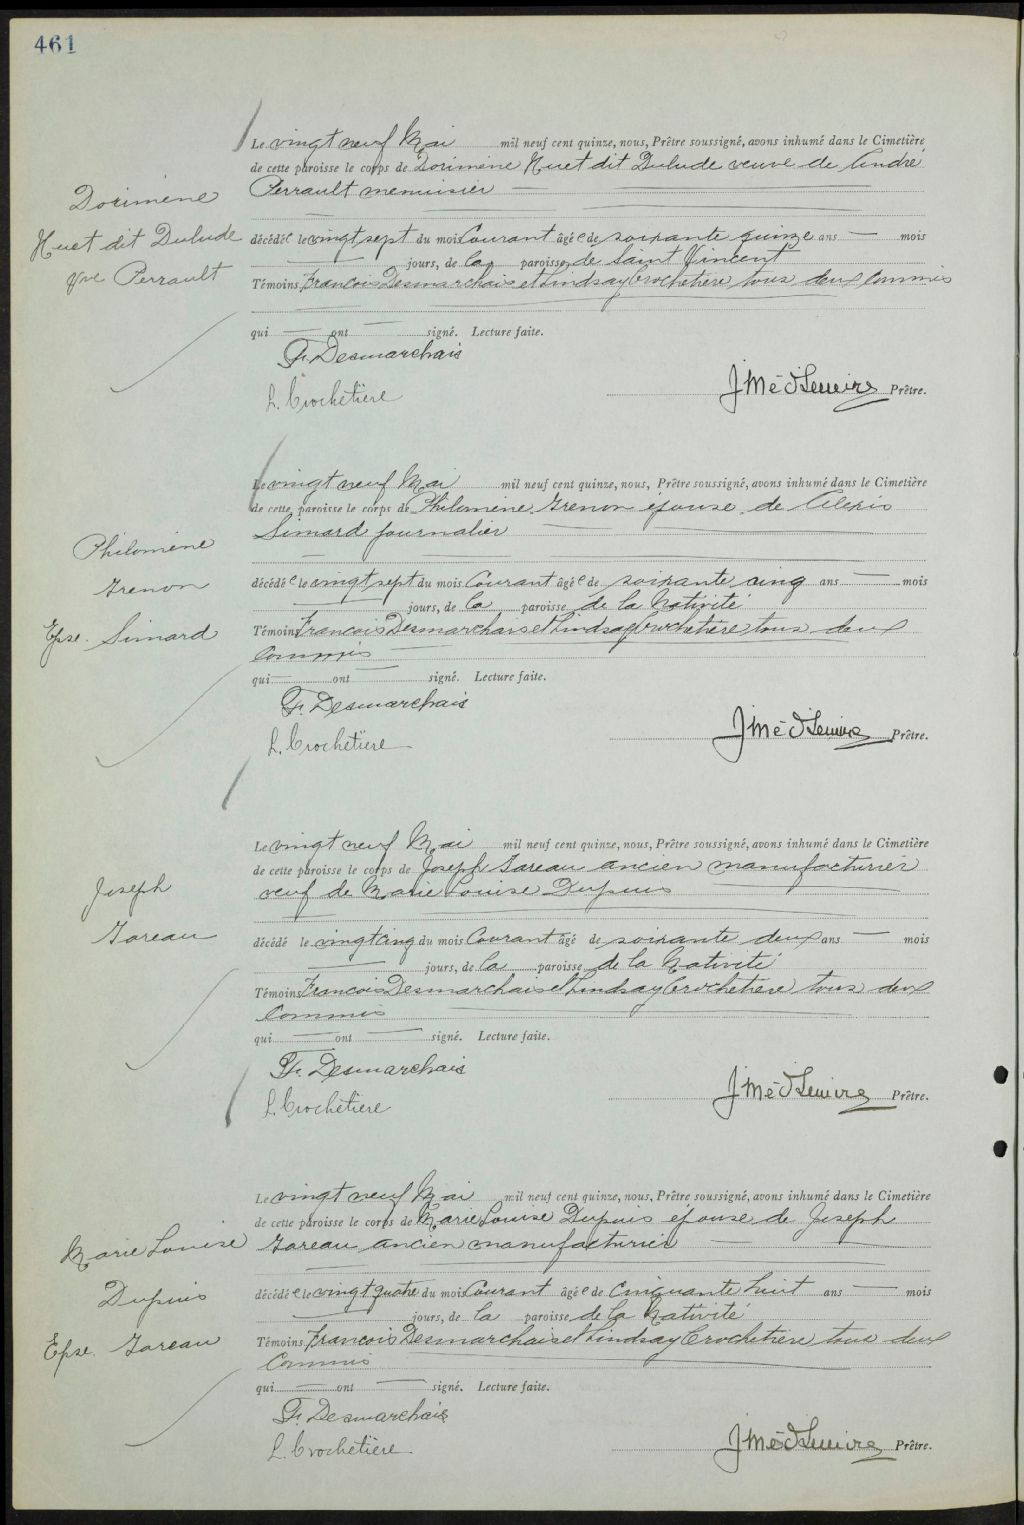 461
Le vingt neuf Mai mil neuf cent quinze, nous, Prêtre soussigné, avons inhumé dans le Cimetière
de cette paroisse le corps de Dorimène Huet dit Dulude veuve de André
Perrault menuisier
Dorimène
Huet dit Dulude
Vve Perrault
décédée le vingt sept du mois Courant âgée de soixante quinze ans — mois
— jours, de la paroisse de Saint Vincent
Témoins François Desmarchais et Lindsay Crochetière tous deux Commis
qui — ont — signé. Lecture faite.
Fr. Desmarchais
L. Crochetière
Prêtre.
Le vingt neuf Mai mil neuf cent quinze, nous, Prêtre soussigné, avons inhumé dans le Cimetière
de cette paroisse le corps de Philomène Grenon épouse de Alexis
Simard journalier
Philomène
Grenon
Epse. Simard
décédée le vingt sept du mois Courant âgée de soixante cinq ans — mois
— jours, de la paroisse de la Nativité
Témoins François Desmarchais et Lindsay Crochetière tous deux
Commis
qui — ont — signé. Lecture faite.
Fr. Desmarchais
L. Crochetière
Prêtre.
Le vingt neuf Mai mil neuf cent quinze, nous, Prêtre soussigné, avons inhumé dans le Cimetière
de cette paroisse le corps de Joseph Gareau ancien manufacturier
veuf de Marie Louise Dupuis
Joseph
Gareau
décédé le vingt cinq du mois Courant âgé de soixante deux ans — mois
— jours, de la paroisse de la Nativité
Témoins François Desmarchais et Lindsay Crochetière tous deux
Commis
qui — ont — signé. Lecture faite.
Fr. Desmarchais
L. Crochetière
Prêtre.
Le vingt neuf Mai mil neuf cent quinze, nous, Prêtre soussigné, avons inhumé dans le Cimetière
de cette paroisse le corps de Marie Louise Dupuis épouse de Joseph
Gareau ancien manufacturier
Marie Louise
Dupuis
Epse. Gareau
décédée le vingt quatre du mois Courant âgée de Cinquante huit ans — mois
— jours, de la paroisse de la Nativité
Témoins François Desmarchais et Lindsay Crochetière tous deux
Commis
qui — ont — signé. Lecture faite.
Fr. Desmarchais
L. Crochetière
Prêtre.